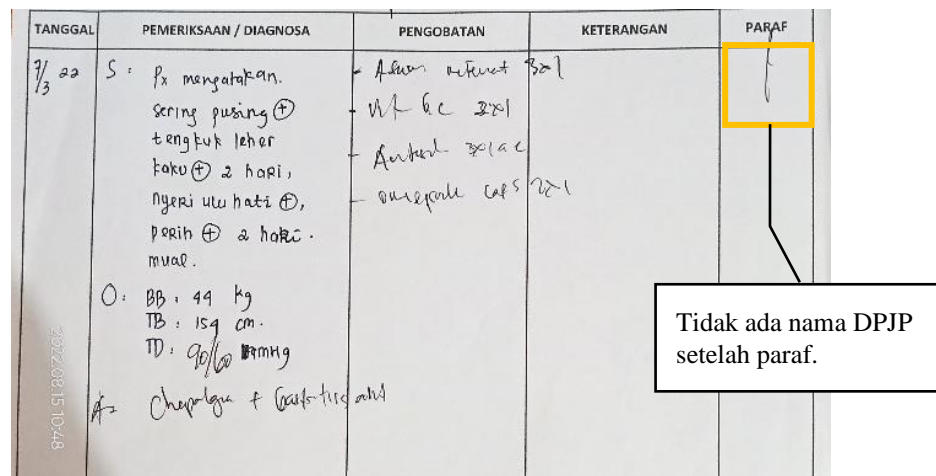 TANGGAL PEMERIKSAAN / DIAGNOSA PENGOBATAN KETERANGAN PARAF
7/3 22
S : Px mengatakan.
sering pusing (+)
tengkuk leher
kaku (+) 2 hari,
nyeri ulu hati (+),
perih (+) 2 hari.
mual.
O : BB : 44 kg
TB : 154 cm.
TD : 90/60 mmHg
A = Chepalgia + Gastritis
- 3x1
- Vit Bc 2x1
- Antasid 3x1 ac
- omeprazole caps 2x1
Tidak ada nama DPJP
setelah paraf.
2022.08.15 10:48